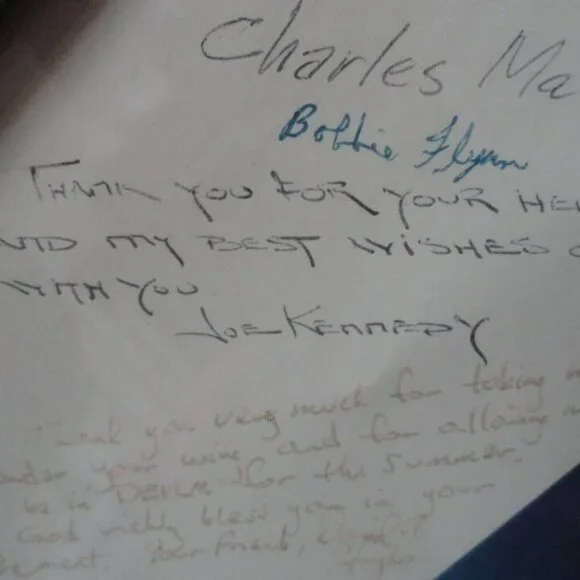 Charles Ma
Bobbie Flynn
THANK YOU FOR YOUR HEL
AND MY BEST WISHES
WITH YOU
JOE KENNEDY
you very much for taking
under your wing and for allowing
be in for the Summer.
God richly bless you in your
Your friend,